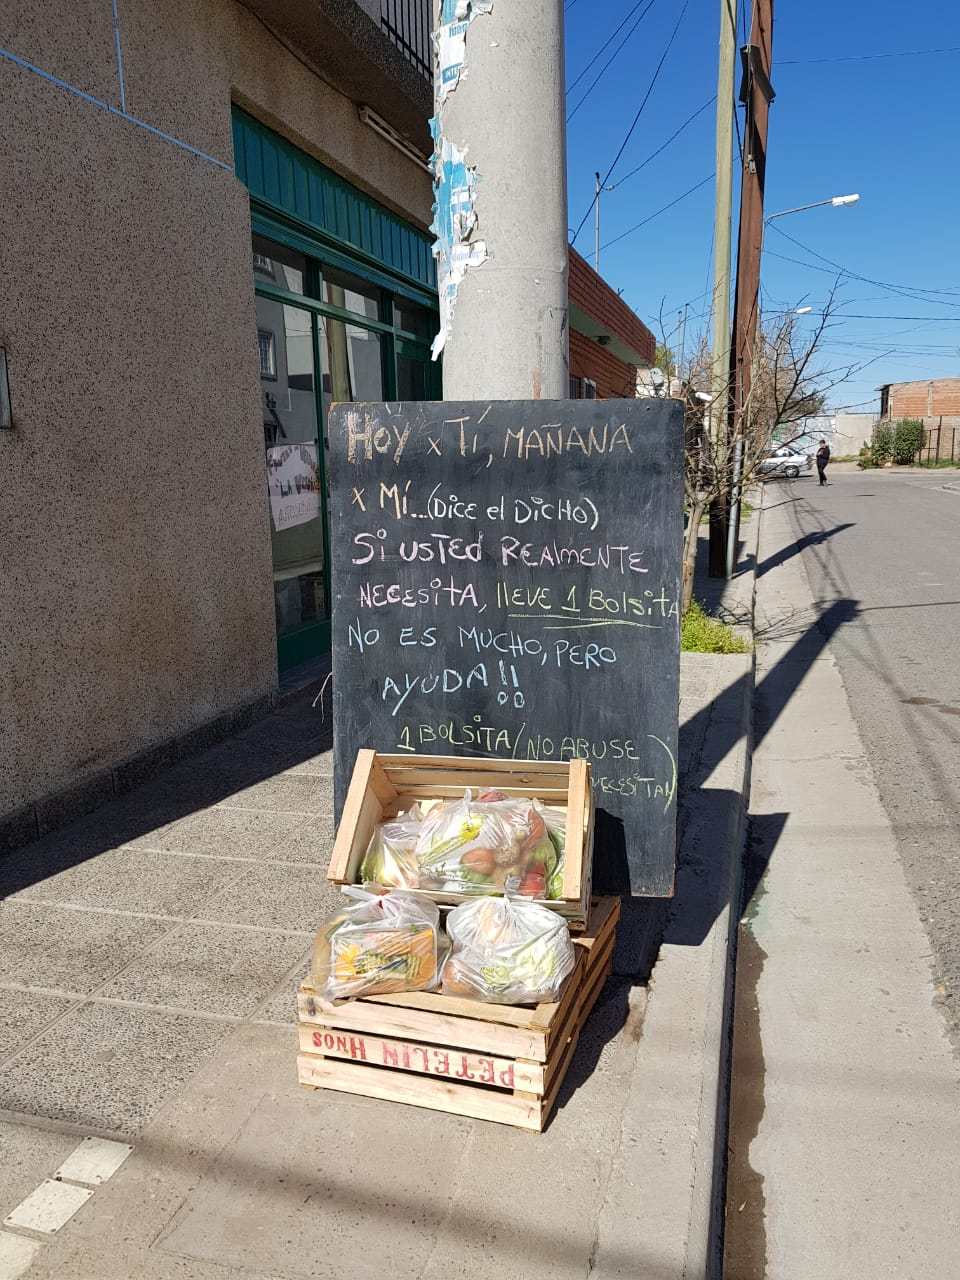 HOY x TÍ, MAÑANA
x MÍ...(DICE el DICHO)
Si USTED REAlmENTE
NECESITA, llEVE 1 BolsITA
NO ES MUCHO, PERO
AYUDA!!
1 BOLSITA/NO ABUSE
NECESITAN)
PETELIN HNOS